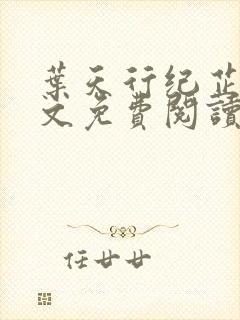 葉天行纪芷
文免費閱讀
任廿廿